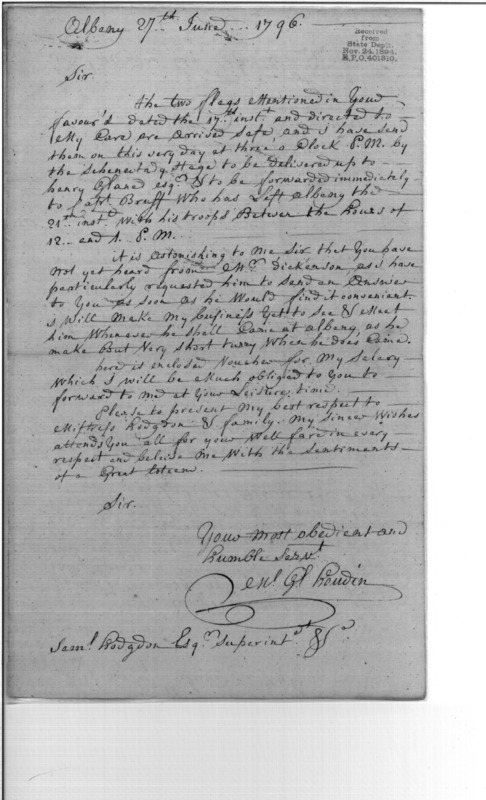 Albany 27th June 1796.
Received
from
State Dept.
Nov. 24, 1894.
R.P.O, 401310.
Sir
the two flags Mentioned in Your
favour's dated the 17th inst. and directed to
My Care are arrived Safe, and i have send
them on this very day at three o Clock P.M. by
the Schenectady Stage to be delivered up to
henry Glane esqr. & to be forwarded immediately
to Capt. Bruff Who has Left Albany the
21st inst. With his troops Between the hours of
12 and 1. P.M.
it is astonishing to Me Sir that You have
Not yet heard from Mr. dickenson, as i have
particularly requested him to send an Answer
to You as soon as he Would find it convenient.
i Will Make My business Yet to see & Meet
him Whenever he shall Came at Albany, as he
make But Very short when he does Came.
here is enclosed Voucher for My Salary
Which i Will be Much obliged to You to
forward to me at Your Leisure time.
Please to present My best respect to
Mistress hodgdon & family. My Sincer Wishes
attends You all for your Well fare in every
respect and beleive Me With the Sentiments
of a Great Esteem.
Sir.
Your most obedient and
humble Servt.
Ml. Gl. houdin
Saml. hodgdon Esqr. Superintdt. &c.